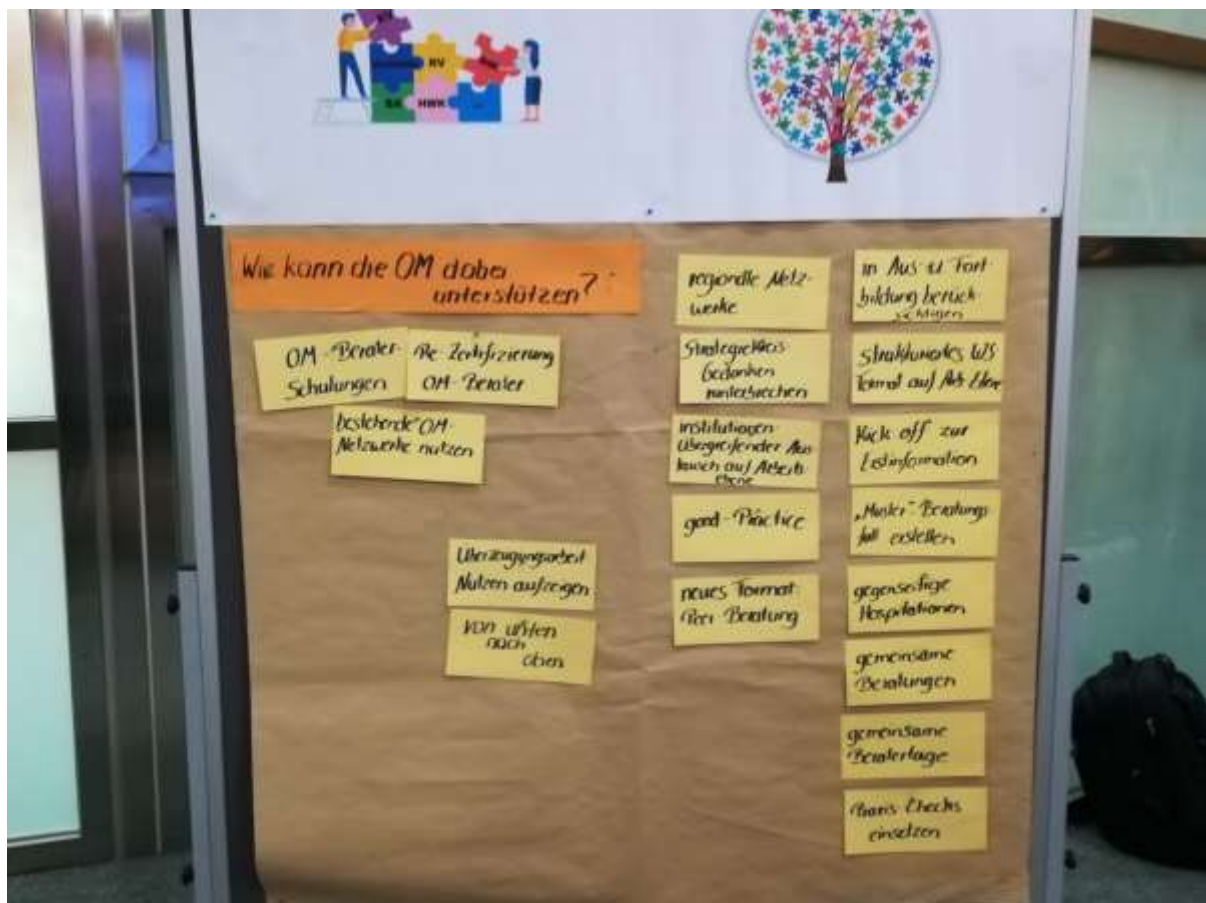 RV
BA HWK
Wie kann die OM dabei
unterstützen?
OM-Berater-
Schulungen
Re-Zertifizierung
OM-Berater
bestehende OM-
Netzwerke nutzen
Überzeugungsarbeit
Nutzen aufzeigen
von unten
nach
oben
regionale Netz-
werke
Strategiekreis
Gedanken
runterbrechen
institutionen
übergreifender Aus
tausch auf Arbeits
ebene
good-Practice
neues Format:
Peer Beratung
in Aus u Fort-
bildung berück
sichtigen
Strukturiertes WS
Format auf Arb. Ebene
Kick off zur
Erstinformation
„Muster" Beratungs
fall erstellen
gegenseitige
Hospitationen
gemeinsame
Beratungen
gemeinsame
Beratertage
Praxis Checks
einsetzen